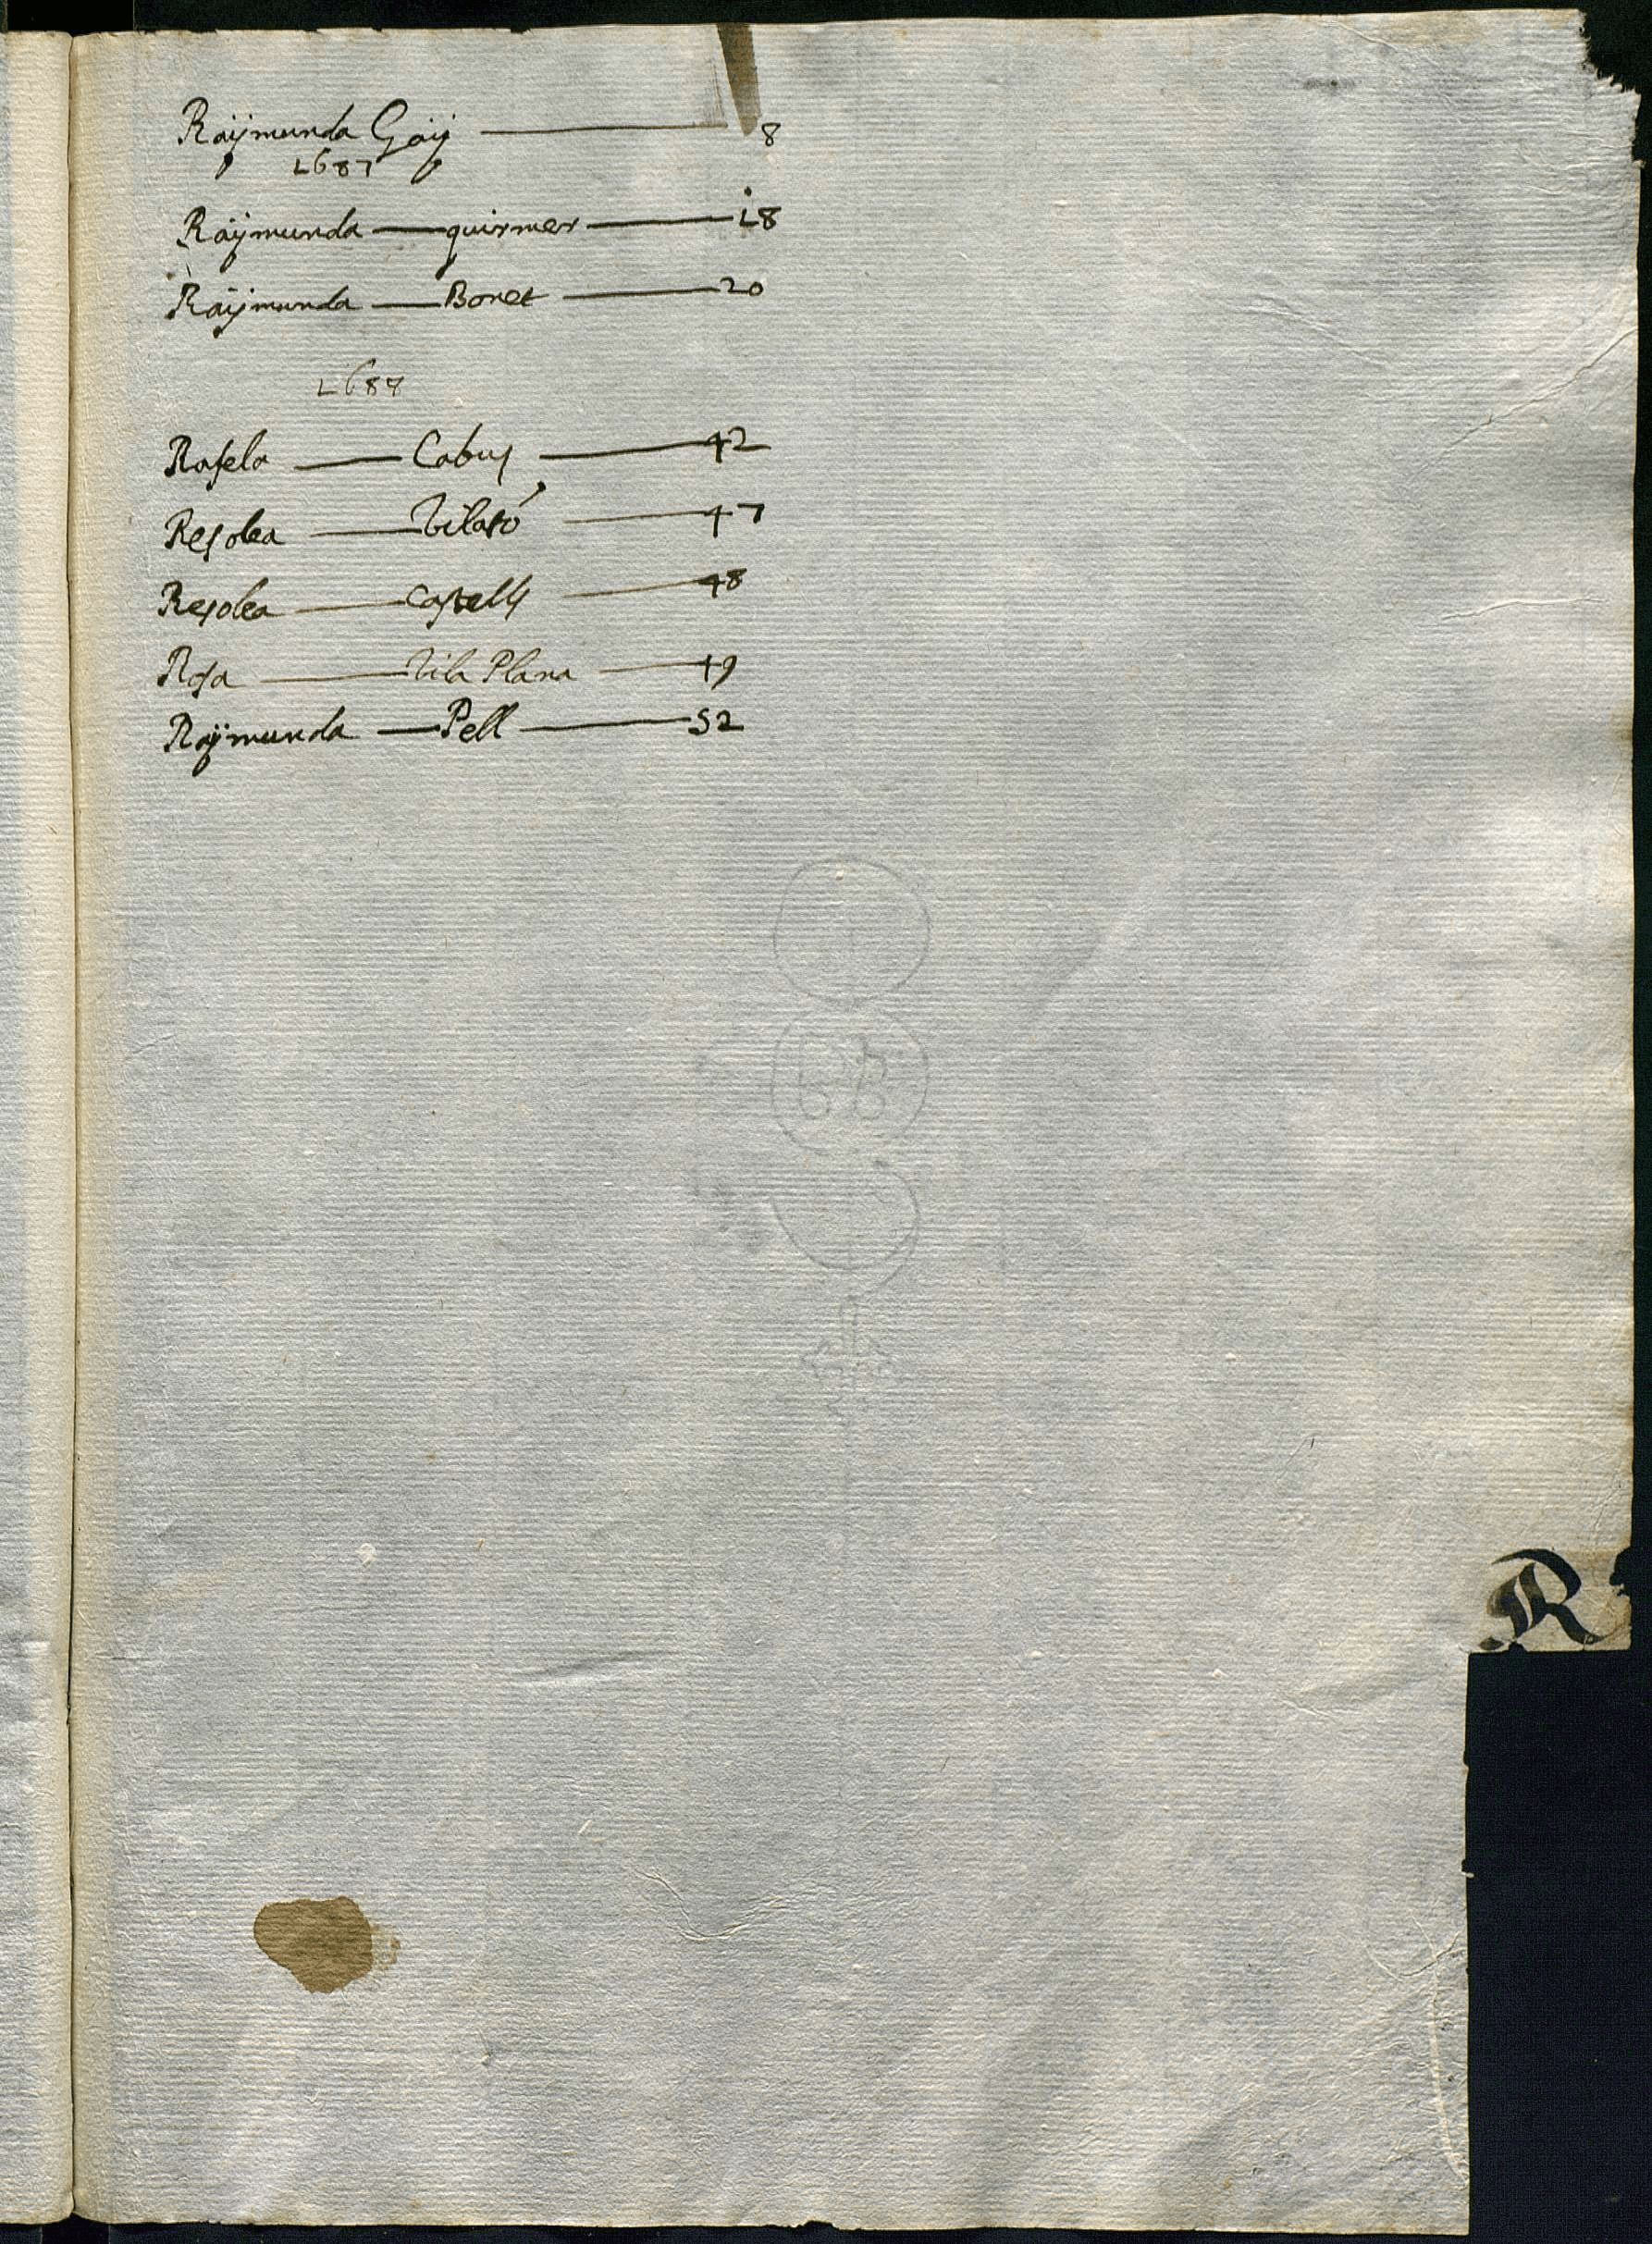 Raÿmunda Gaÿ — 8
1687
Raÿmunda — quirmer — 18
Raÿmunda — Bonet — 20
1687
Rafela — Cabus — 42
Resolea — Vilaró — 47
Resolea — Castells — 48
Rosa — Vila Plana — 49
Raÿmunda — Pell — 52
R